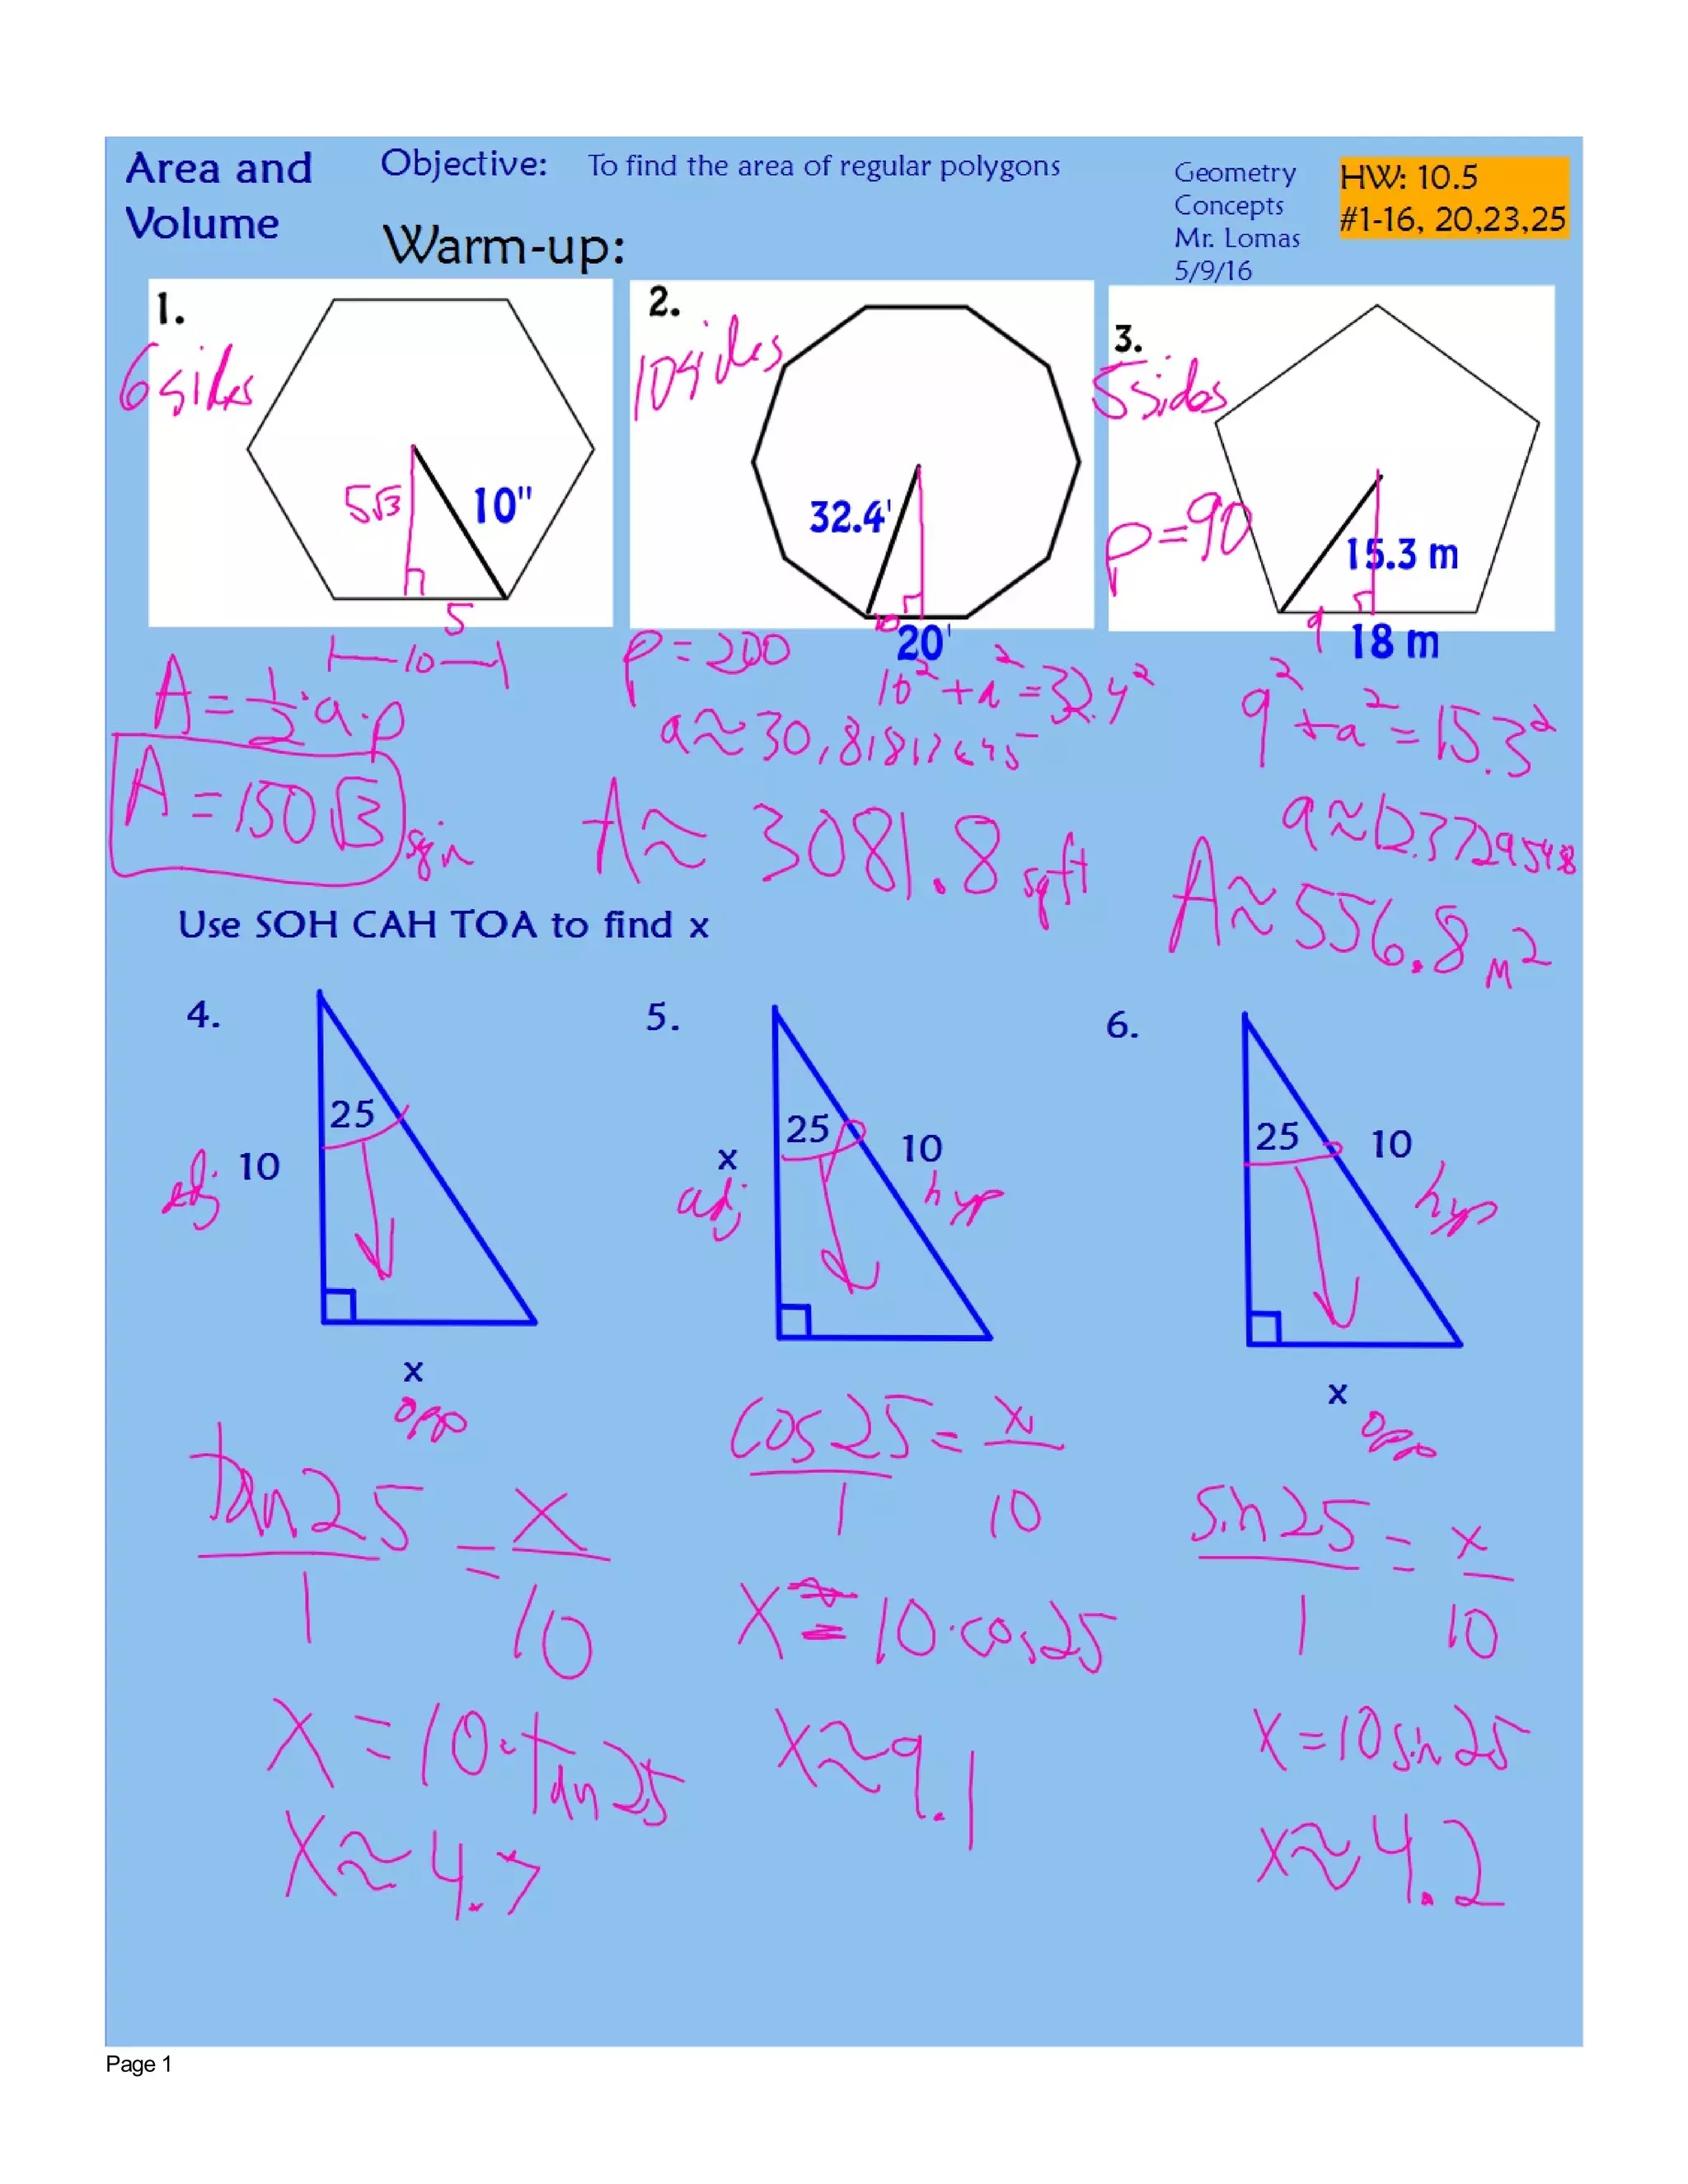 Area and
Volume
Objective: To find the area of regular polygons
Warm-up:
Geometry
Concepts
Mr. Lomas
5/9/16
HW: 10.5
#1-16, 20,23,25
1.
6 sides
5√3
10"
5
10
A = 1/2 · a · p
A = 150√3 sq in
2.
10 sides
32.4'
10
20'
p = 200
10² + a² = 32.4²
a ≈ 30.81817645
A ≈ 3081.8 sq ft
3.
5 sides
p = 90
15.3 m
9
18 m
9² + a² = 15.3²
a ≈ 12.3729548
A ≈ 556.8 m²
Use SOH CAH TOA to find x
4.
25
adj 10
x
opp
tan 25 / 1 = x / 10
x = 10 · tan 25
x ≈ 4.7
5.
25
x
adj
10
hyp
cos 25 / 1 = x / 10
x = 10 · cos 25
x ≈ 9.1
6.
25
10
hyp
x
opp
sin 25 / 1 = x / 10
x = 10 sin 25
x ≈ 4.2
Page 1